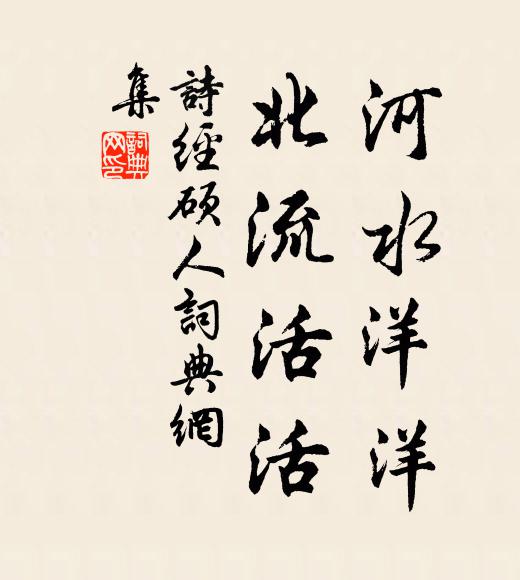 河水洋洋
北流活活
詩經碩人詞典網
集
詞典
网印